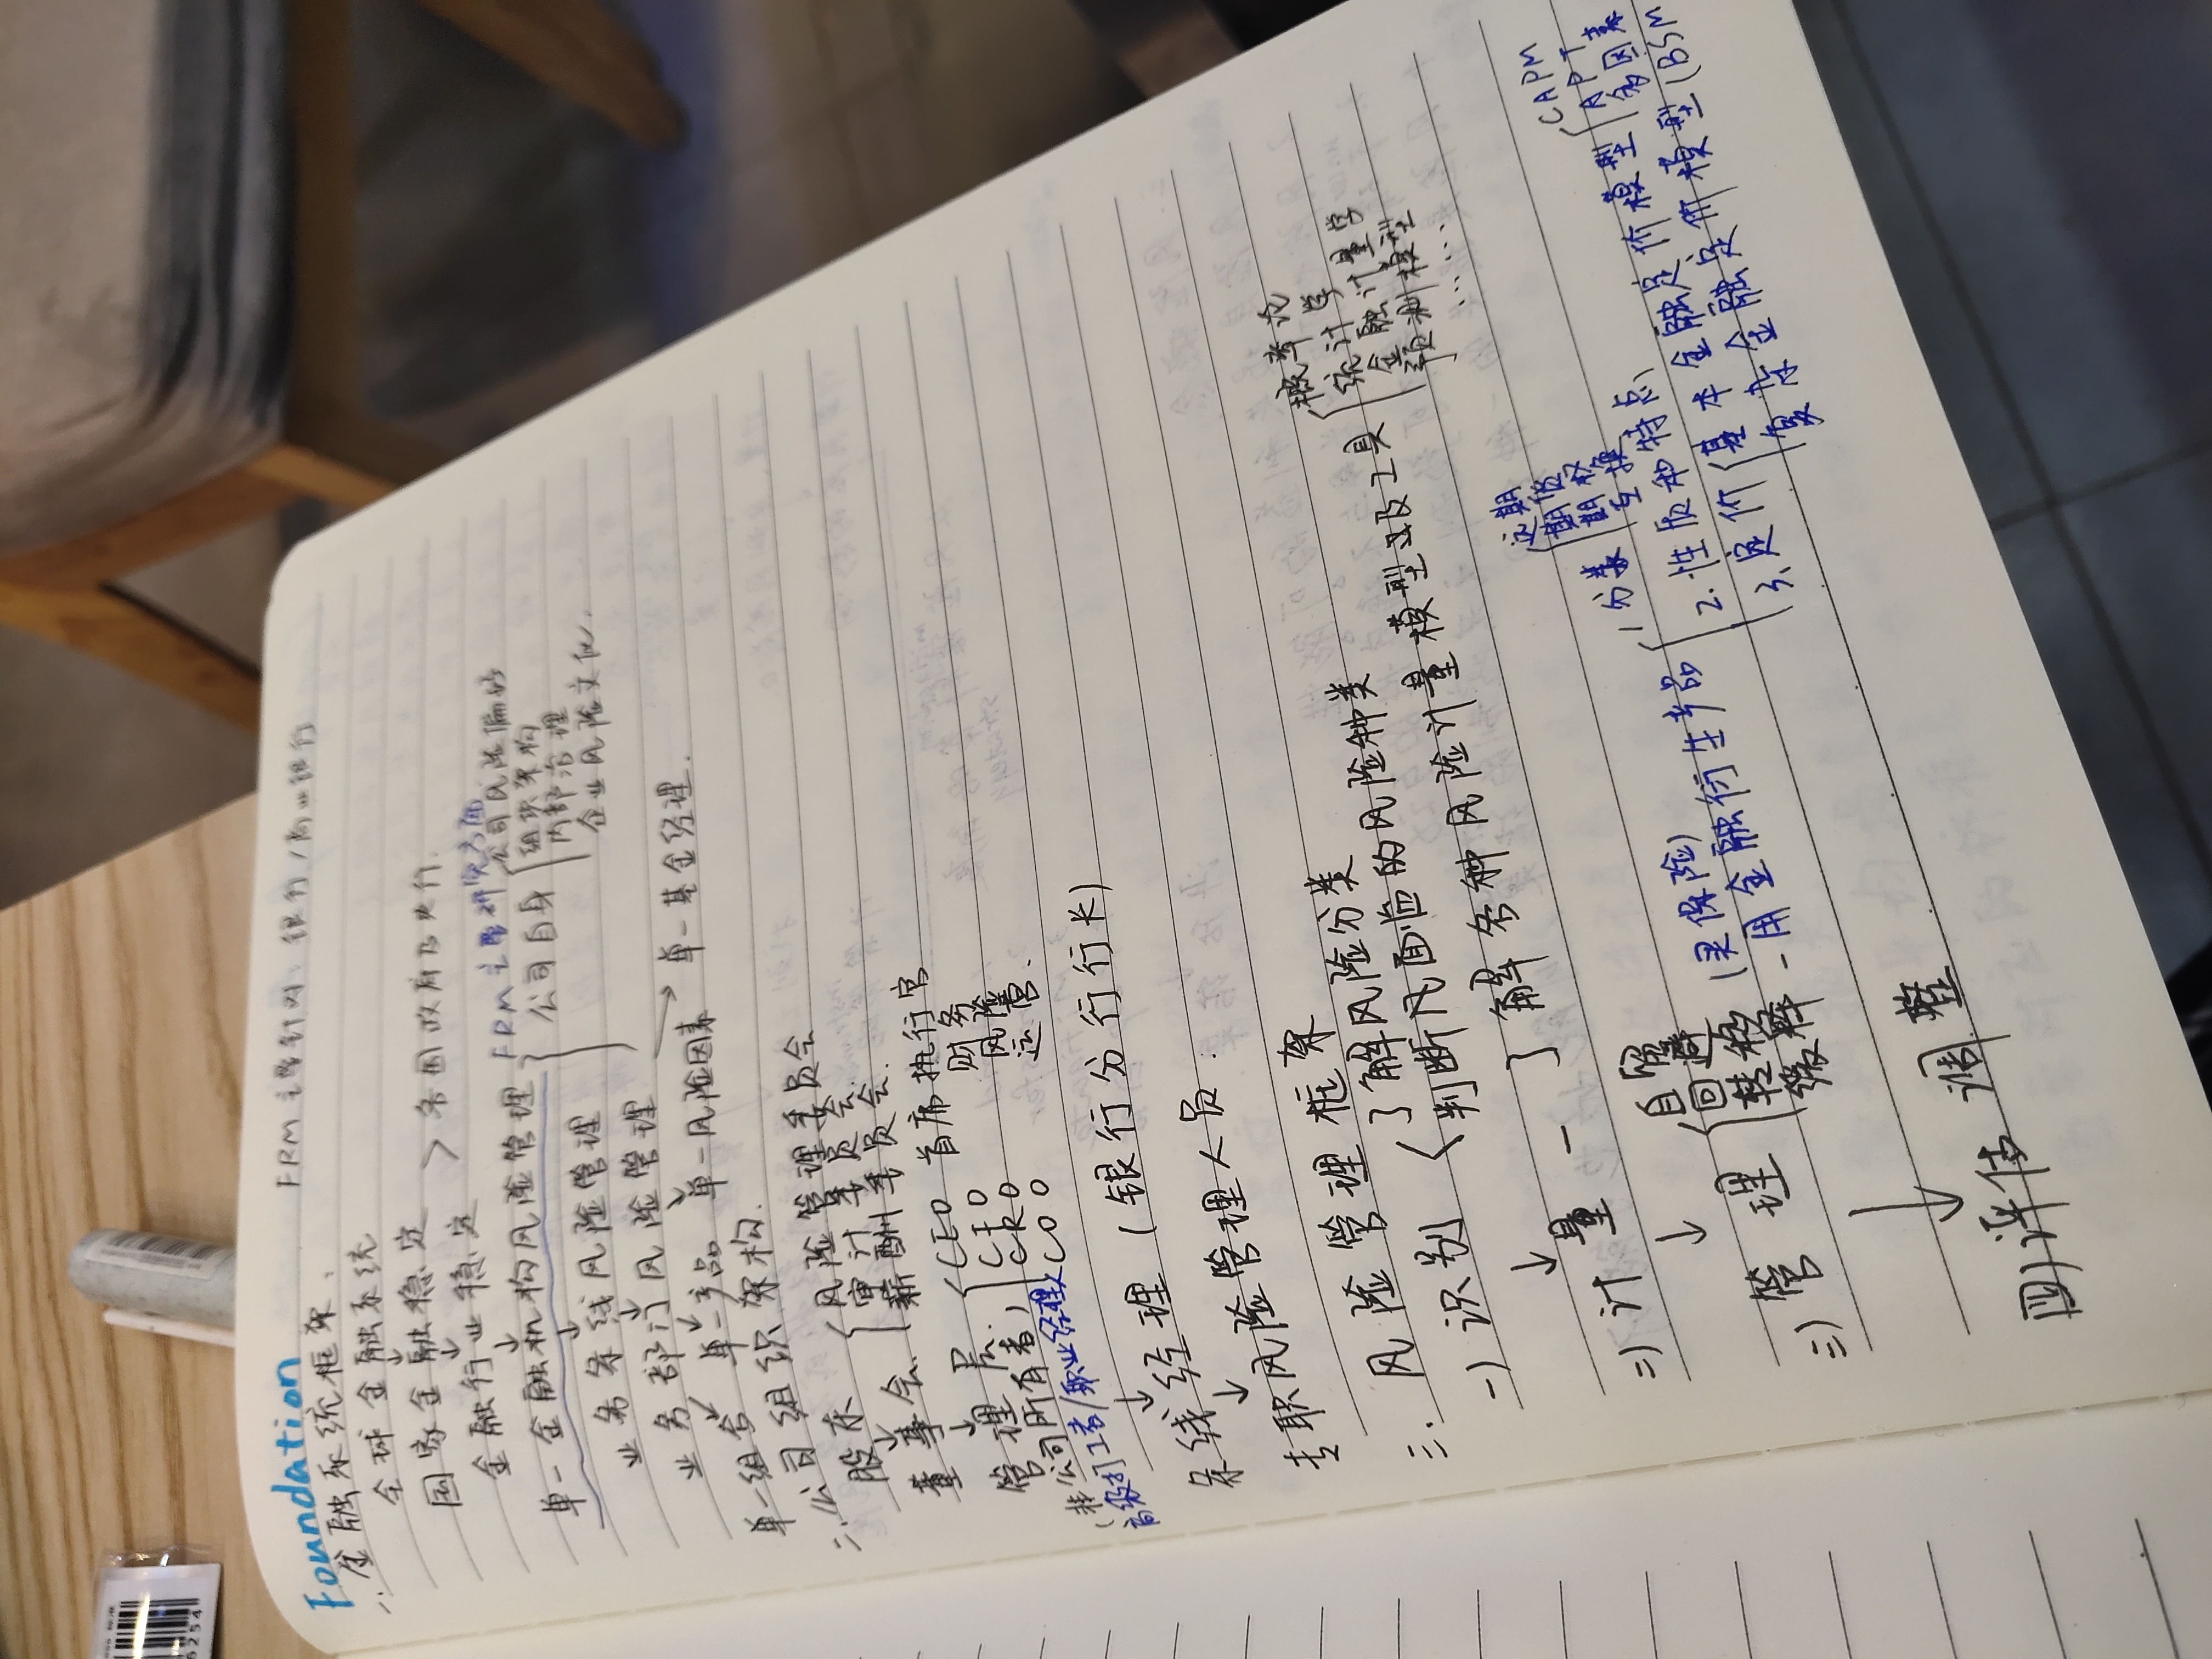 Foundation
FRM主要针对:银行/商业银行
一.金融系统框架.
全球金融系统
国家金融稳定 > 各国政府及央行.
金融行业稳定
单一金融机构风险管理 FRM主要研究方面
公司自身
公司风险偏好
组织架构
内部治理
企业风险文化.
业务条线风险管理
业务部门风险管理
单一组合 单一产品 单一风险因素 → 单一基金经理.
二.公司组织架构.
股东
董事会
风险管理委员会
审计委员会
薪酬委员会.
管理层.
(非公司所有者,
高级打工者/职业经理人)
CEO 首席执行官
CFO 财务
CRO 风险
COO 运营.
条线经理(银行分行行长)
专职风险管理人员.
三.风险管理框架
一)识别
了解风险分类
判断所面临的风险种类
二)计量 — 了解各种风险计量模型以及工具
概率论
统计学
金融计量学
预测模型
......
三)管理
自留
回避
转移 (买保险)
缓释 - 用金融衍生产品
1分类
远期
期货
期权
互换
2.性质和特点.
3.定价
基本金融定价模型
CAPM
APT
多因素
复杂金融定价模型(BSM
四)评估 调整